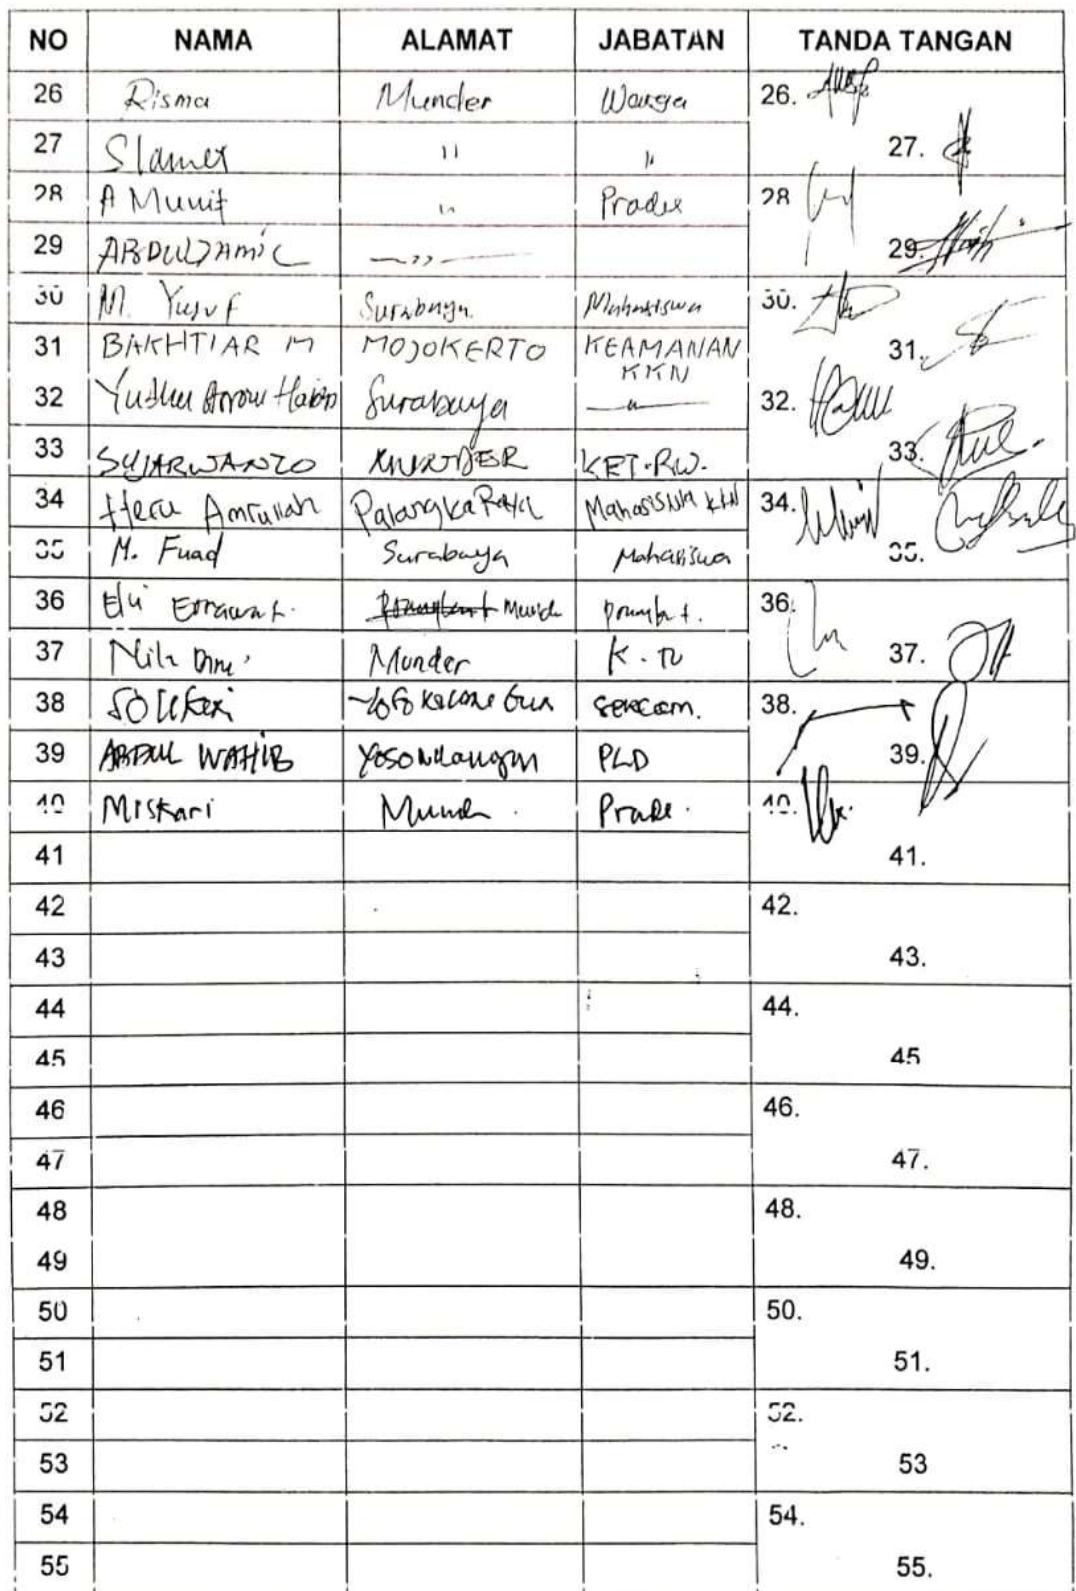 NO NAMA ALAMAT JABATAN TANDA TANGAN
26 Risma Munder Warga 26.
27 Slamet " " 27.
28 A Munif " Prades 28
29 ABDUL JAMIL —,,— 29.
30 M. Yusuf Surabaya Mahasiswa 30.
31 BAKHTIAR M MOJOKERTO KEAMANAN KKN 31.
32 Surabaya —"— 32.
33 SUJARWANTO KET.RW. 33.
34 Heru Amrullah Palangka Raya Mahasiswa KKN 34.
35 M. Fuad Surabaya Mahasiswa 35.
36 36.
37 Munder K. TU 37.
38 38.
39 ABDUL WAHIB Yosowilangun PLD 39.
40 Miskari Prade. 40.
41 41.
42 42.
43 43.
44 44.
45 45
46 46.
47 47.
48 48.
49 49.
50 50.
51 51.
52 52.
53 53
54 54.
55 55.